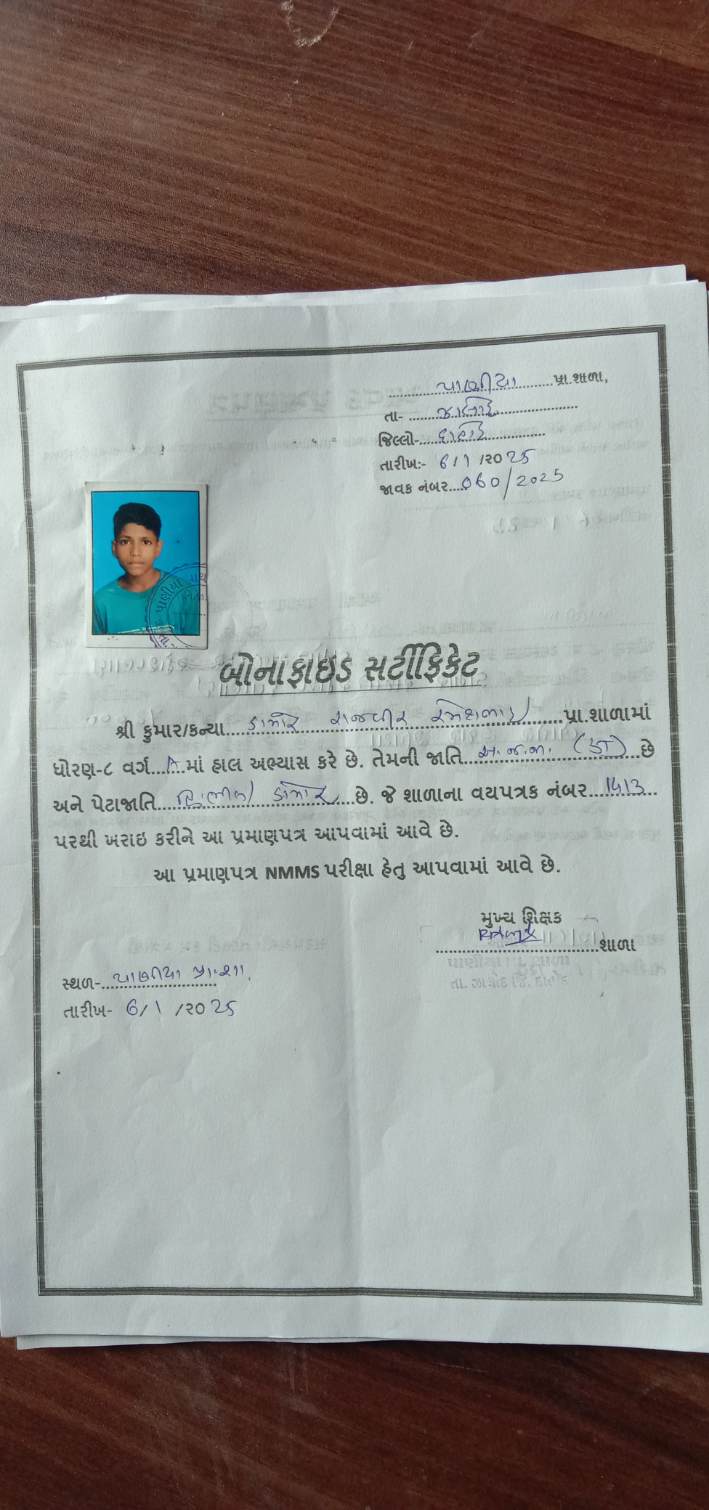 પાણીયા પ્રા.શાળા,
તા-
જિલ્લો- દાહોદ
તારીખ:- 6/1/૨૦25
જાવક નંબર...060/2025
બોનાફાઇડ સર્ટીફિકેટ
શ્રી કુમાર/કન્યા...ડામોર રાજવીર રમેશભાઇ...પ્રા.શાળામાં
ધોરણ-૮ વર્ગ...A.માં હાલ અભ્યાસ કરે છે. તેમની જાતિ...અ.જ.જા....છે
અને પેટાજાતિ...ડામોર...છે. જે શાળાના વયપત્રક નંબર...1413...
પરથી ખરાઇ કરીને આ પ્રમાણપત્ર આપવામાં આવે છે.
આ પ્રમાણપત્ર NMMS પરીક્ષા હેતુ આપવામાં આવે છે.
મુખ્ય શિક્ષક
શાળા
સ્થળ-પાણીયા પ્રા.શા.
તારીખ- 6/1/૨૦25